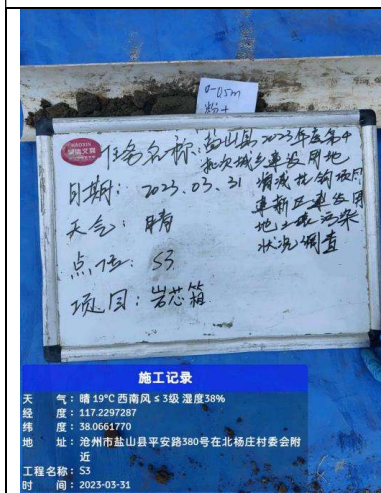 0-0.5m
粉土
任务名称:盐山县2023年度第4
批次城乡建设用地
增减挂钩项目
建新区建设用
地土壤污染
状况调查
日期:2023.03.31
天气:晴
点位:S3
项目:岩芯箱
施工记录
天 气:晴 19℃ 西南风 ≤ 3级 湿度38%
经 度:117.2297287
纬 度:38.0661770
地 址:沧州市盐山县平安路380号在北杨庄村委会附
近
工程名称:S3
时 间:2023-03-31